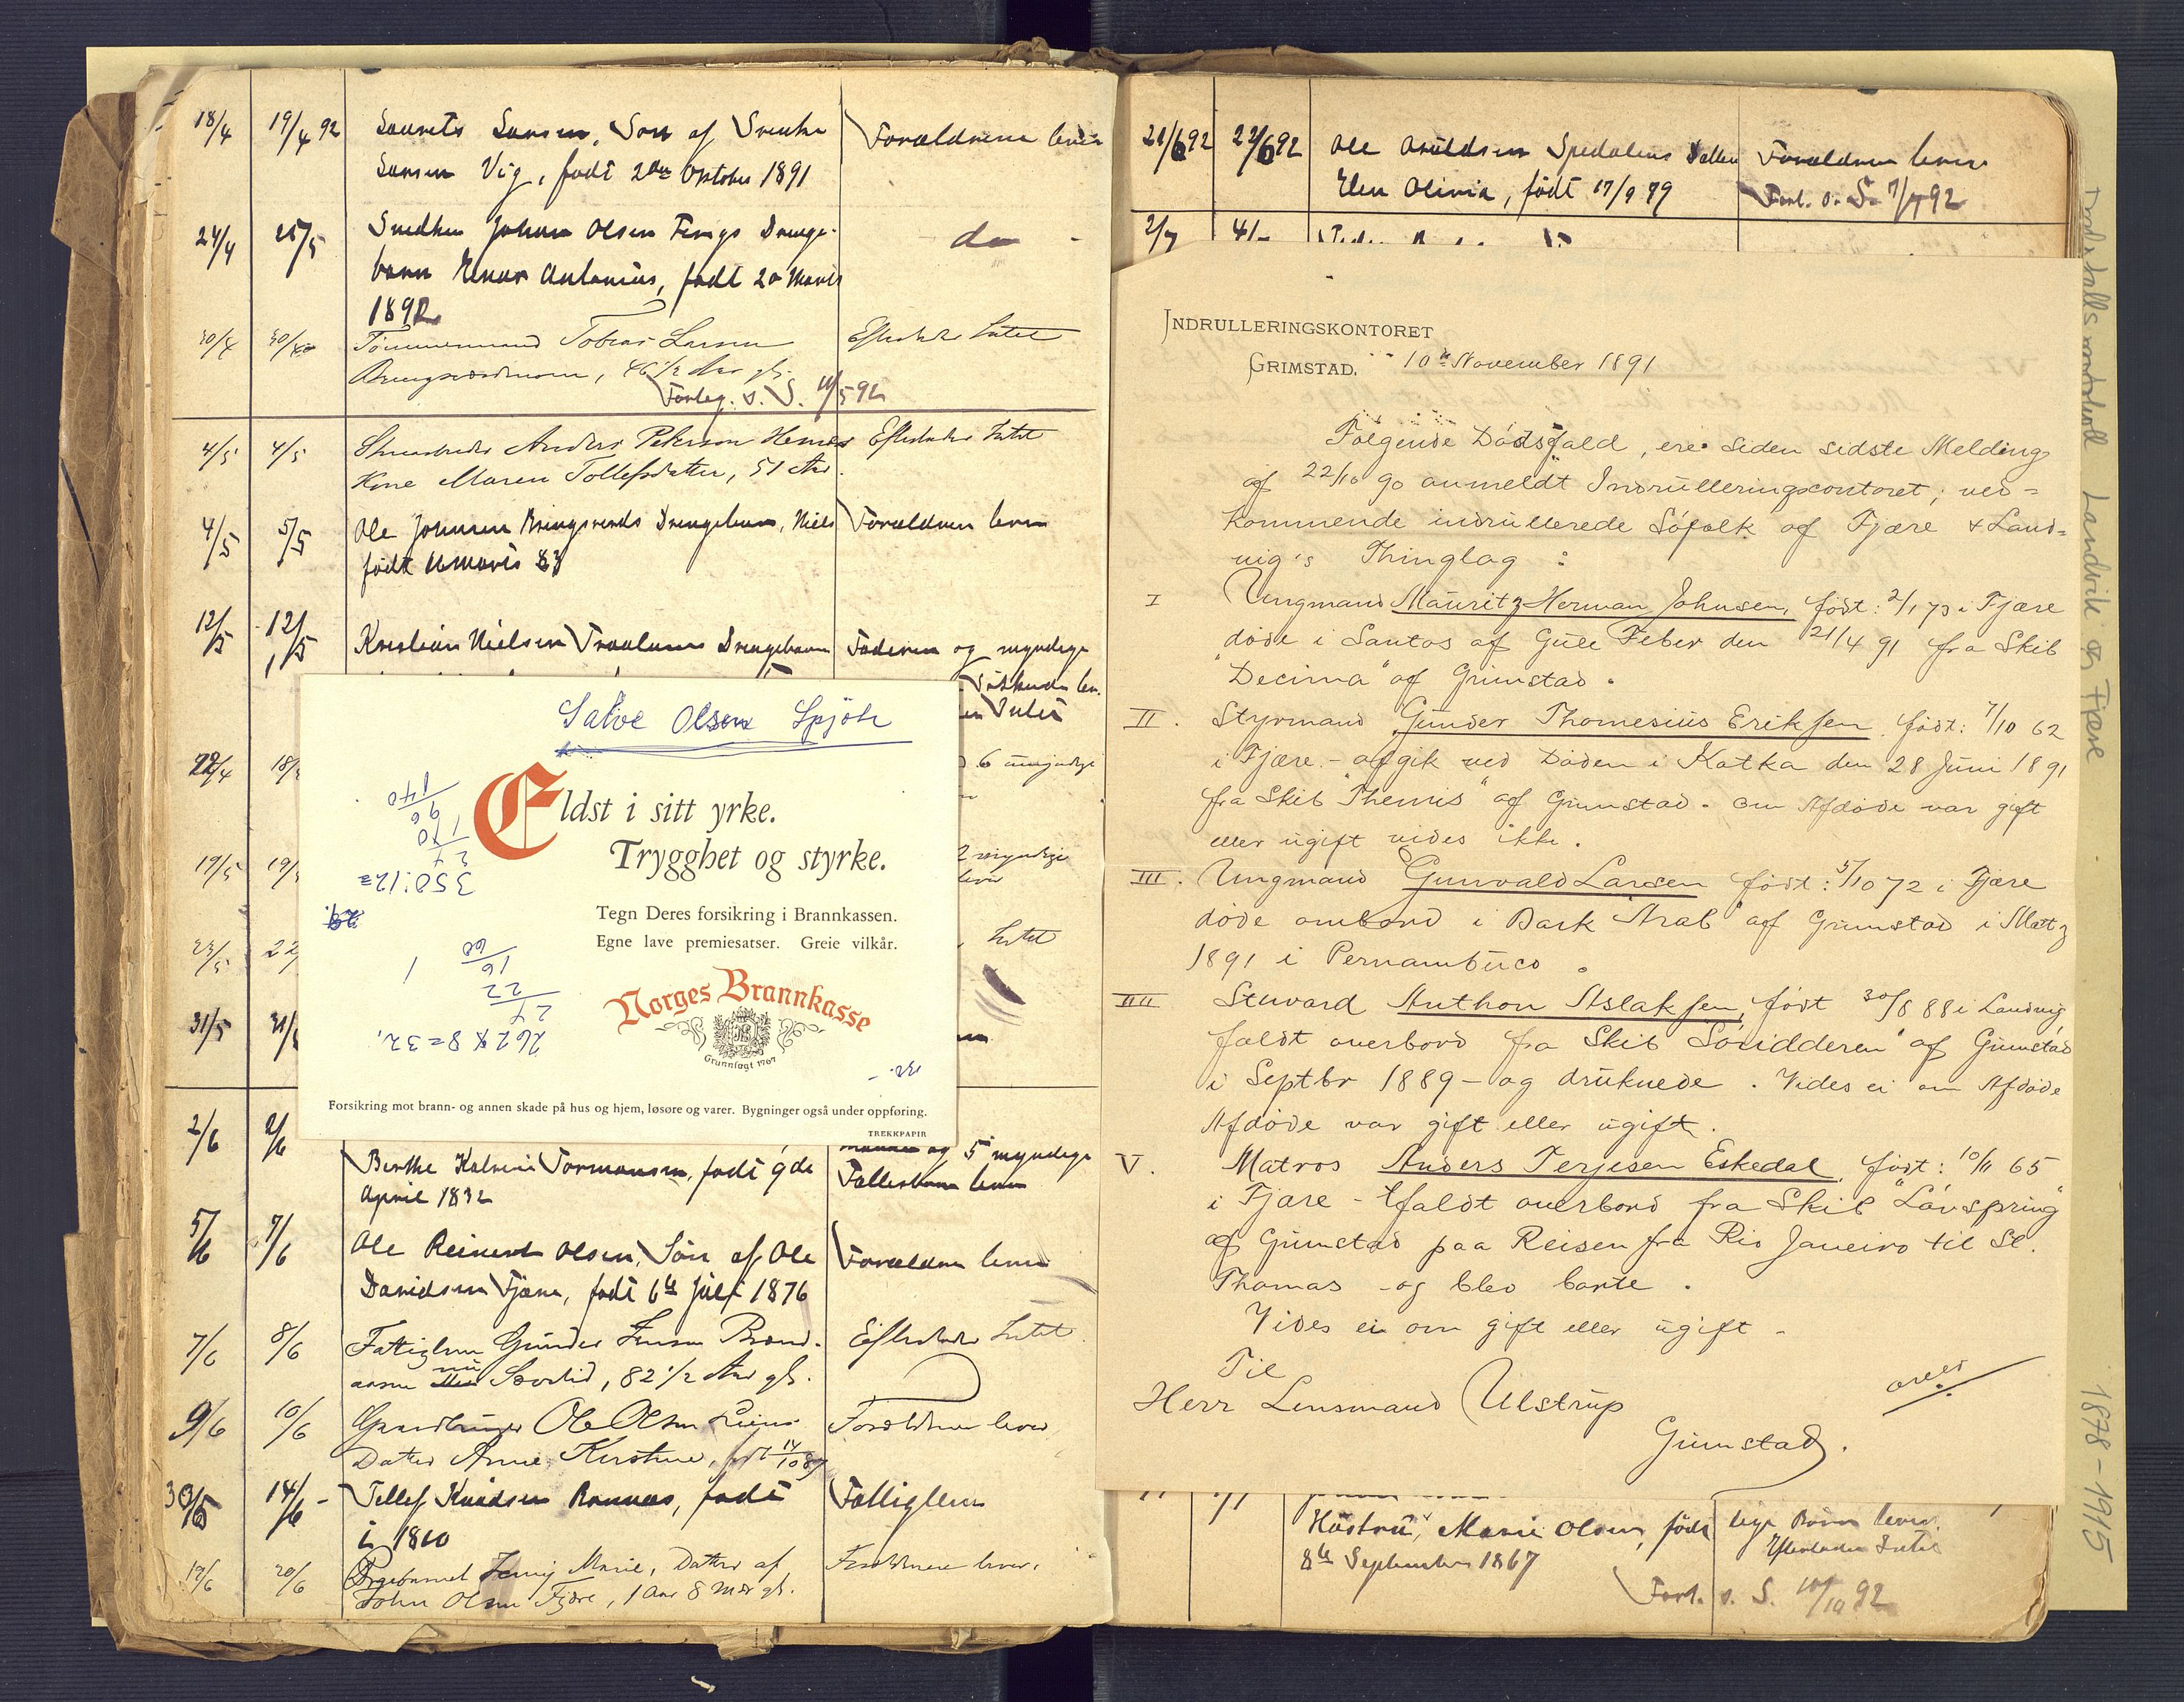 18/4 19/4 92 Laurits Larsen, Søn af Svenke Forældrene lever
Larsen Vig, født 2den Oktober 1891
24/4 25/5 Snedker Johan Olsen Fevigs Drenge- do -
barn Einar Antonius, født 20 Marts
1892
30/4 30/4 Tømmermand Tobias Larsen Efterlader Intet
46 1/2 Aar gl.
Forleg. s. S. 11/5 92
4/5 4/5 Anders Petersen Efterlader Intet
Kone Maren Tollefsdatter, 51 Aar.
4/5 5/5 Ole Johnsen Bringsværds Drengebarn, Niels Forældrene lever
født
12/5 12/5 Kristian Nielsen Drengebarn Faderen og myndige
Søskende lev.
Intet
22/4 18/ 6 umyndige
19/5 19/ 2 myndige
lever
23/5 22/ Intet
31/5 31/
2/6 2/6 og 5 myndige
Berthe Katrine Tormodsen, født 9de Fællesbørn lever
April 1832
5/6 7/6 Ole Reinert Olsen, Søn af Ole Forældrene lever
Davidsen Fjære, født 6te Juli 1876
7/6 8/6 Fattiglem Gunder Jensen Efterlader Intet
nu 82 1/2 Aar gl.
9/6 10/6 Gaardbruger Ole Olsen Forældrene lever
Datter Anne Kirstine, født 14/10 89
30/5 14/6 - Tellef Knudsen født Fattiglem
i 1810
17/6 20/6 Pigebarnet Jenny Marie, Datter af Forældrene lever.
John Olsen Fjære, 1 Aar 8 Mdr gl.
Salve Olsen Spjøte
Eldst i sitt yrke.
Trygghet og styrke.
Tegn Deres forsikring i Brannkassen.
Egne lave premiesatser. Greie vilkår.
Norges Brannkasse
Grunnlagt 1767
Forsikring mot brann- og annen skade på hus og hjem, løsøre og varer. Bygninger også under oppføring.
TREKKPAPIR
350:12=
24
170
96
140
29.
262 × 8 = 32,
24
22
16
60
1
132. -
21/6 92 22/6 92 Ole Arildsen Spedalens Datter Forældrene lever
Elen Olivia, født 17/9 79 Forl. s. S. 7/7 92
2/7 4/-
INDRULLERINGSKONTORET
GRIMSTAD. 10de November 1891
Følgende Dødsfald, ere siden sidste Melding
af 22/10 90 anmeldt Indrulleringscontoret; ved=
kommende indrullerede Søfolk af Fjære & Land=
vig's Thinglag :
I Ungmand Mauritz Herman Johnsen, født: 2/1 73 i Fjære
døde i Santos af Gule Feber den 21/4 91 fra Skib
"Decima" af Grimstad.
II. Styrmand Gunder Thomesius Eriksen, født: 7/10 62
i Fjære - afgik ved Døden i Kotka den 28 Juni 1891
fra Skib "Themis" af Grimstad. Om Afdøde var gift
eller ugift vides ikke.
III. Ungmand Gunvald Larsen født: 5/10 72 i Fjære
døde ombord i Bark "Arab" af Grimstad i Martz
1891 i Pernambuco.
IIII Stuvard Anthon Aslaksen, født 30/8 88 i Landvig
faldt overbord fra Skib "Søridderen" af Grimstad
i Septbr 1889 - og druknede. Vides ei om Afdøde
Afdøde var gift eller ugift.
V. Matros Anders Terjesen Eskedal, født: 10/11 65
i Fjære - faldt overbord fra Skib "Løvspring"
af Grimstad paa Reisen fra Rio Janeiro til St.
Thomas - og blev borte.
Vides ei om gift eller ugift -
Til
Herr Lensmand Ulstrup
Grimstad.
Hustru, Marie Olsen, født lige Børn lever.
8de September 1867 Efterlader Intet
Forl. s. S. 10/10 92
Dødsfallsprotokoll Landvik og Fjære 1878-1915